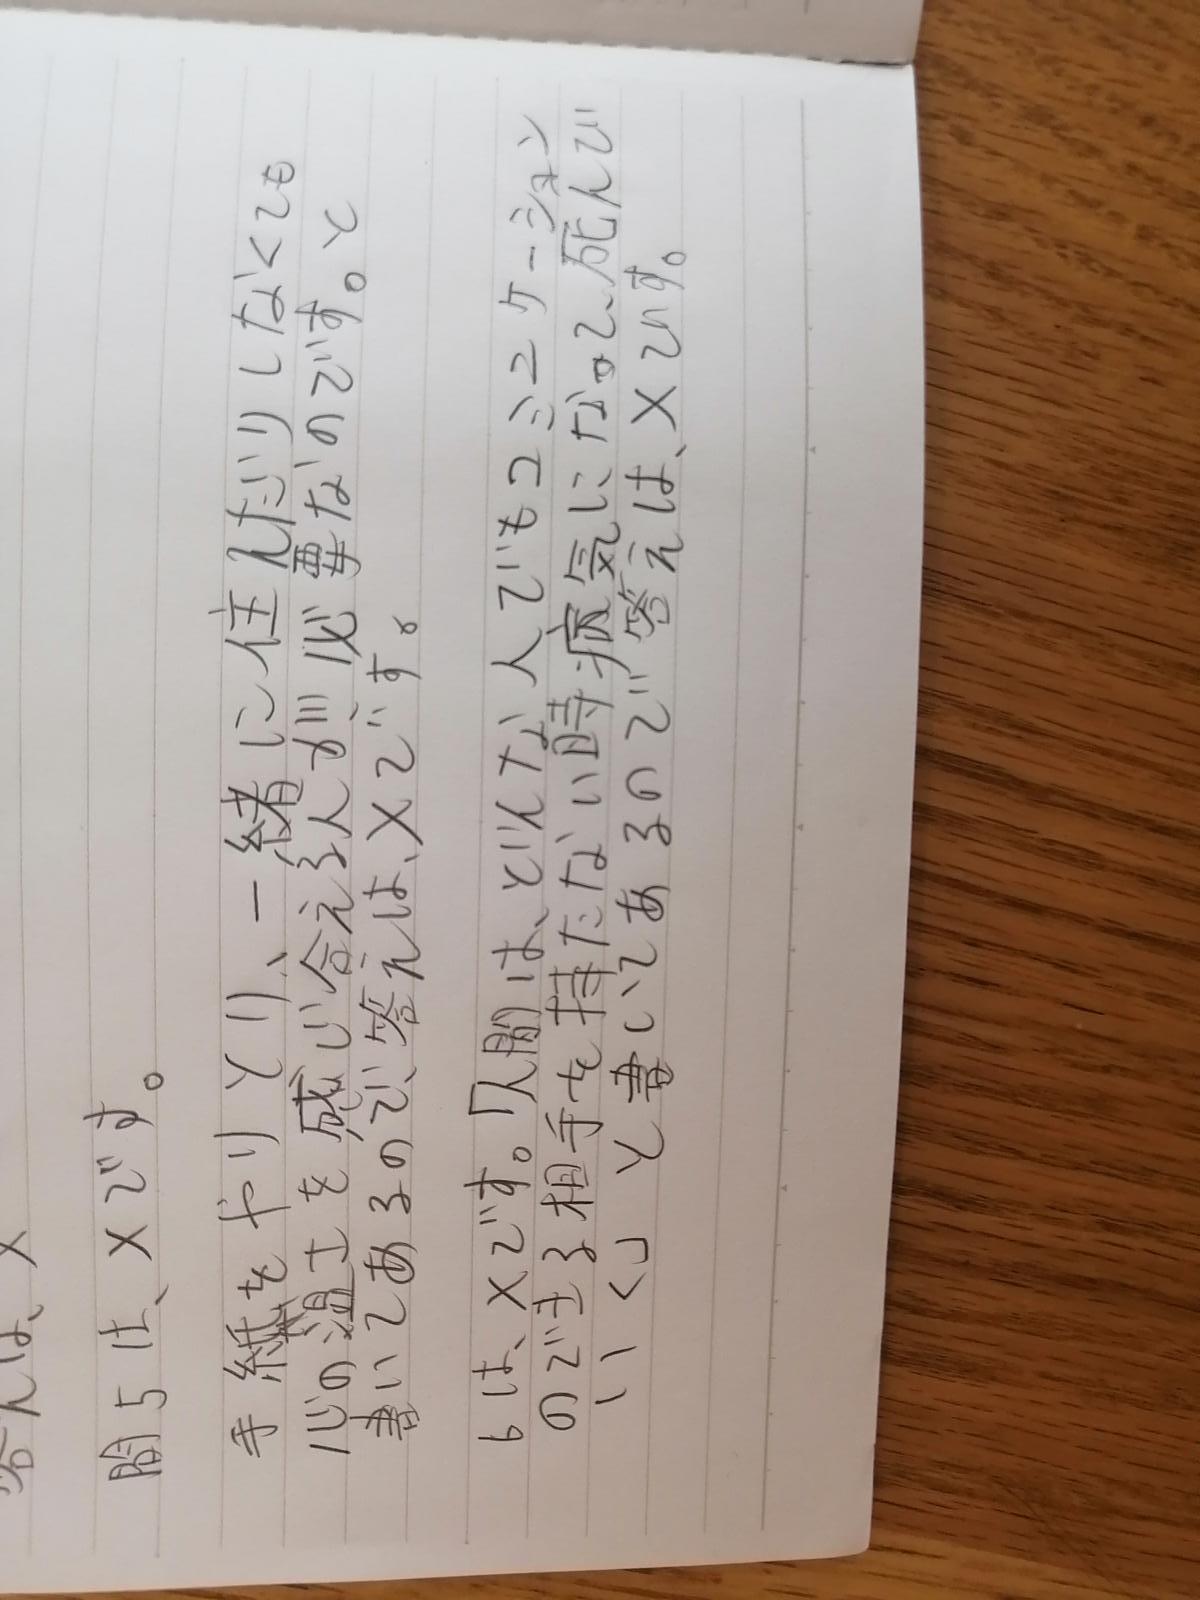 答えは、×
問5は、×です。
手紙をやりとり、一緒に住んだりしなくても
心の温士を感じ合える人が必要なのです。と
書いてあるので答えは、×です。
6は、×です。「人間は、どんな人でもコミュニケーション
のできる相手を持たない時病気になって、死んで
いく」と書いてあるので答えは、×です。